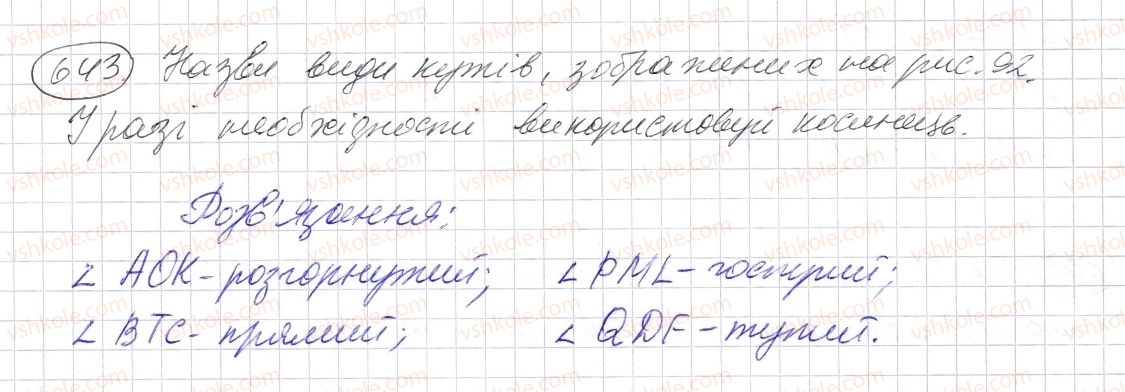 643. Назви види кутів, зображених на рис. 92.
У разі необхідності використовуй косинець.
Розв'язання:
∠ AOK - розгорнутий; ∠ PML - гострий;
∠ BTC - прямий; ∠ QDF - тупий.